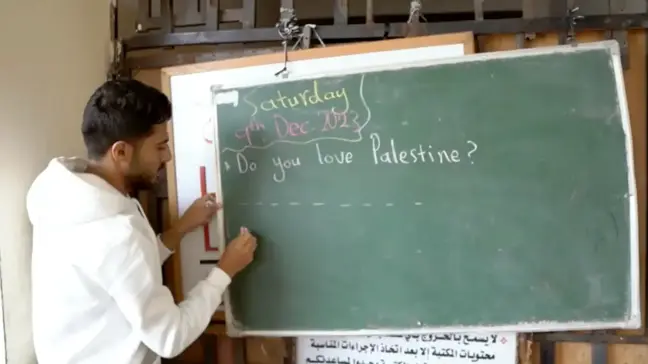 Saturday
9th Dec. 2023
* Do you love Palestine?
لا يسمح بالخروج بأي
محتويات المكتبة إلا بعد اتخاذ الإجراءات المناسبة